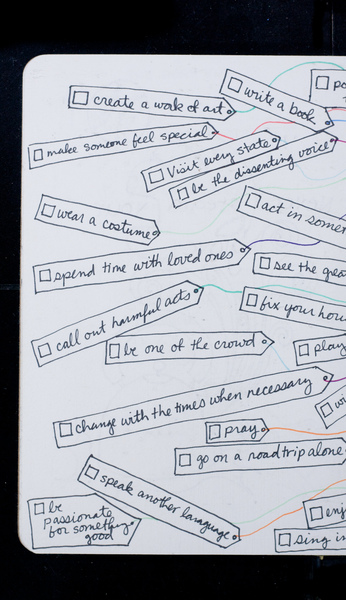 create a work of art
write a book
make someone feel special
Visit every state
be the dissenting voice
wear a costume
act in
spend time with loved ones
see the
call out harmful acts
fix your
be one of the crowd
play
change with the times when necessary
pray
go on a road trip alone
speak another language
be
passionate
for something
good
sing